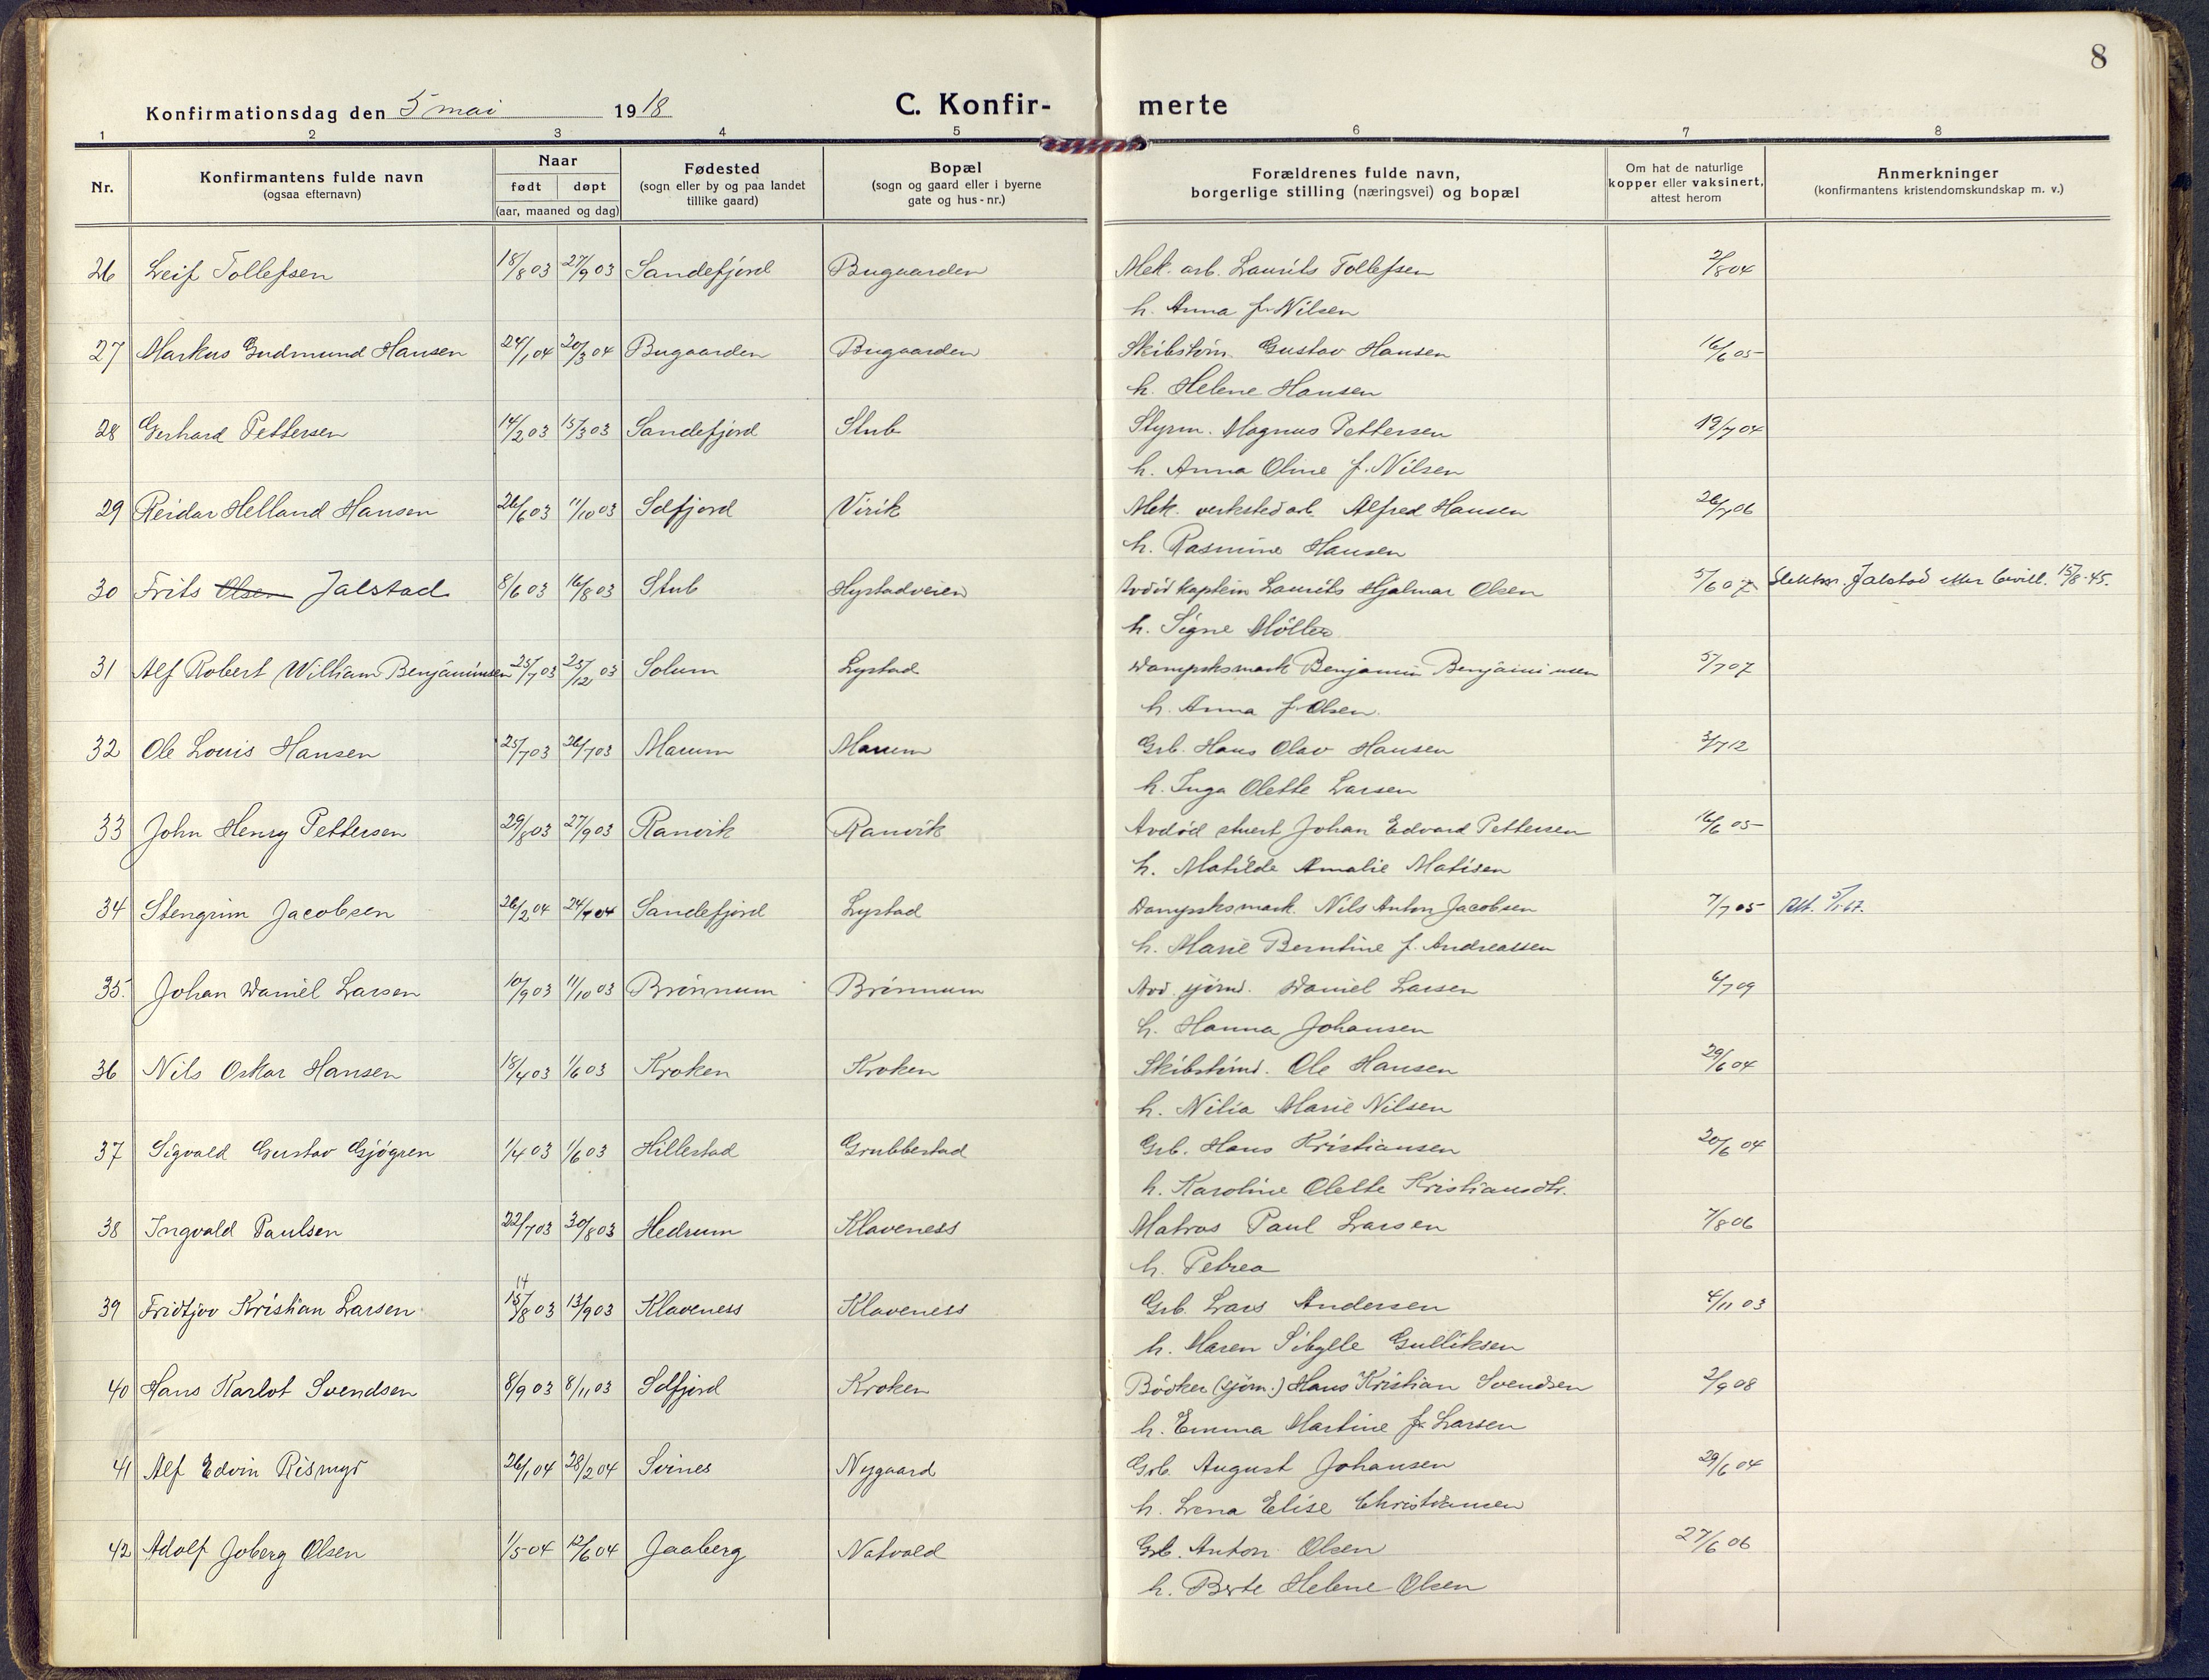 8
Konfirmationsdag den 5 mai 1918 C. Konfir- merte
1 2 3 4 5 6 7 8
Nr.
Konfirmantens fulde navn
(ogsaa efternavn)
Naar
født døpt
(aar, maaned og dag)
Fødested
(sogn eller by og paa landet
tillike gaard)
Bopæl
(sogn og gaard eller i byerne
gate og hus-nr.)
Forældrenes fulde navn,
borgerlige stilling (næringsvei) og bopæl
Om hat de naturlige
kopper eller vaksinert,
attest herom
Anmerkninger
(konfirmantens kristendomskundskap m. v.)
26 Leif Tollefsen 18/8 03 27/9 03 Sandefjord Bugaarden Mek. arb. Laurits Tollefsen 2/8 04
h. Anna f. Nilsen
27 Markus Gudmund Hansen 24/1 04 20/3 04 Bugaarden Bugaarden Skibstøm. Gustav Hansen 16/6 05
h. Helene Hansen
28 Gerhard Pettersen 14/2 03 15/3 03 Sandefjord Stub Styrm. Magnus Pettersen 19/7 04
h. Anna Oline f. Nilsen
29 Reidar Helland Hansen 26/6 03 11/10 03 Sdfjord Virik Mek. verkstedarb. Alfred Hansen 26/7 06
h. Rasmine Hansen
30 Frits Olsen Jalstad 8/6 03 16/8 03 Stub Hystadveien Avdød kaptein Laurits Hjalmar Olsen 5/6 07 Slektsn. Jalstad etter bevill. 15/8-45.
h. Signe Möller
31 Alf Robert William Benjaminsen 25/7 03 25/12 03 Solum Lystad Dampsksmask Benjamin Benjaminsen 5/7 07
h. Anna f. Olsen.
32 Ole Louis Hansen 25/7 03 26/7 03 Marum Marum Grb. Hans Olav Hansen 3/7 12
h. Inga Olette Larsen
33 John Henry Pettersen 29/8 03 27/9 03 Ranvik Ranvik Avdød stuert Johan Edvard Pettersen 16/6 05
h. Matilde Amalie Matisen
34 Stengrim Jacobsen 26/2 04 24/4 04 Sandefjord Lystad Dampsksmask. Nils Anton Jacobsen 7/7 05 Att. 5/1-67.
h. Marie Berntine f. Andreassen
35. Johan Daniel Larsen 10/9 03 11/10 03 Brönnum Brönnum Avd. sjømd. Daniel Larsen 6/7 09
h. Hanna Johansen
36 Nils Oskar Hansen 18/4 03 1/6 03 Kroken Kroken Skibstömd. Ole Hansen 29/6 04
h. Nilia Marie Nilsen
37 Sigvald Gustav Gjögren 1/4 03 1/6 03 Hillestad Grubbestad Grb. Hans Kristiansen 20/6 04
h. Karoline Olette Kristiansdtr.
38 Ingvald Paulsen 22/7 03 30/8 03 Hedrum Klaveness Matros Paul Larsen 7/8 06
h. Petrea
14
39 Fridtjov Kristian Larsen 15/8 03 13/9 03 Klaveness Klaveness Grb. Lars Andersen 4/11 03
h. Maren Sibylle Gulliksen
40 Hans Karlot Svendsen 8/9 03 8/11 03 Sdfjord Kroken Bödker (sjöm.) Hans Kristian Svendsen 2/9 08
h. Emma Martine f. Larsen
41 Alf Edvin Rismyr 26/1 04 28/2 04 Svines Nygaard Grb. August Johansen 29/6 04
h. Lena Elise Christiansen
42 Adolf Joberg Olsen 1/5 04 12/6 04 Jaaberg Natvald Grb. Anton Olsen 27/6 06
h. Berte Helene Olsen